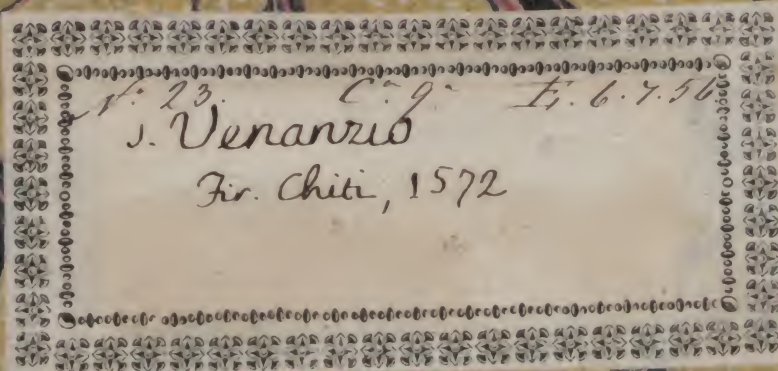 N.º 23. C.ª 9.ª E. 6. 7. 56.
S. Venanzio
Fir. Chiti, 1572